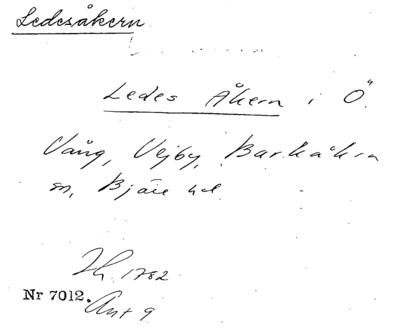 Ledesåkern
Ledes Åkern i Ö.
Vång, Vejby, Barkåkra
sn, Bjäre hd.
Lh. 1782
Nr 7012.
Ant 9